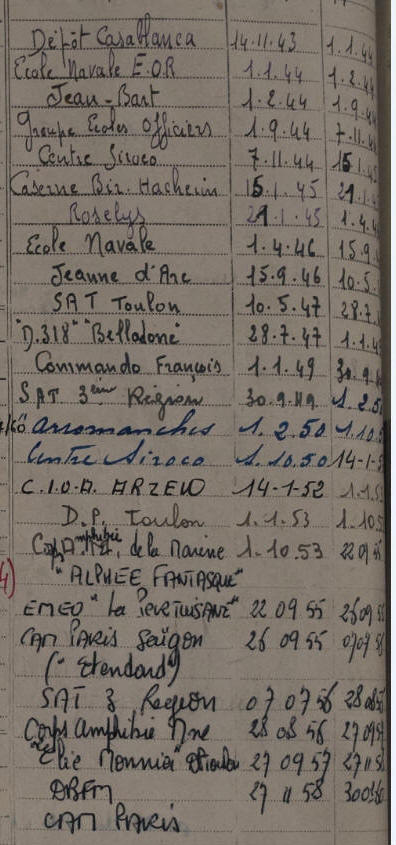 Dépôt Casablanca 14.11.43 1.1.44
Ecole Navale E.O.R 1.1.44 1.2.44
Jean-Bart 1.2.44 1.9.44
Groupe Ecoles Officiers 1.9.44 7.11.44
Centre Siroco 7.11.44 15.1
Caserne Bir-Hacheim 15.1.45 21.1.4
Roselys 21.1.45 1.4.4
Ecole Navale 1.4.46 15.9
Jeanne d'Arc 15.9.46 10.5
SAT Toulon 10.5.47 28.7
"D.318" "Belladone" 28.7.47 1.1.4
Commando François 1.1.49 30.9.4
SAT 3ème Région 30.9.49 1.2.50
Arromanches 1.2.50 1.10.5
Centre Siroco 1.10.50 14-1-5
C.I.O.A. ARZEW 14-1-52 1.1.5
D.P. Toulon 1.1.53 1.10.5
de la Marine 1.10.53 22 09 55
"ALPHEE FANTASQUE"
EMEO "La PERTUISANE" 22 09 55 26 09 5
CAM PARIS Saïgon 26 09 55 07 07 56
("Etendard")
SAT 3 Region 07 07 56 28 08 5
Corps Amphibie Mne 28 08 56 27 09 5
"Elie Monnier" 27 09 57 27 11 5
DBFM 27 11 58
CAM PARIS